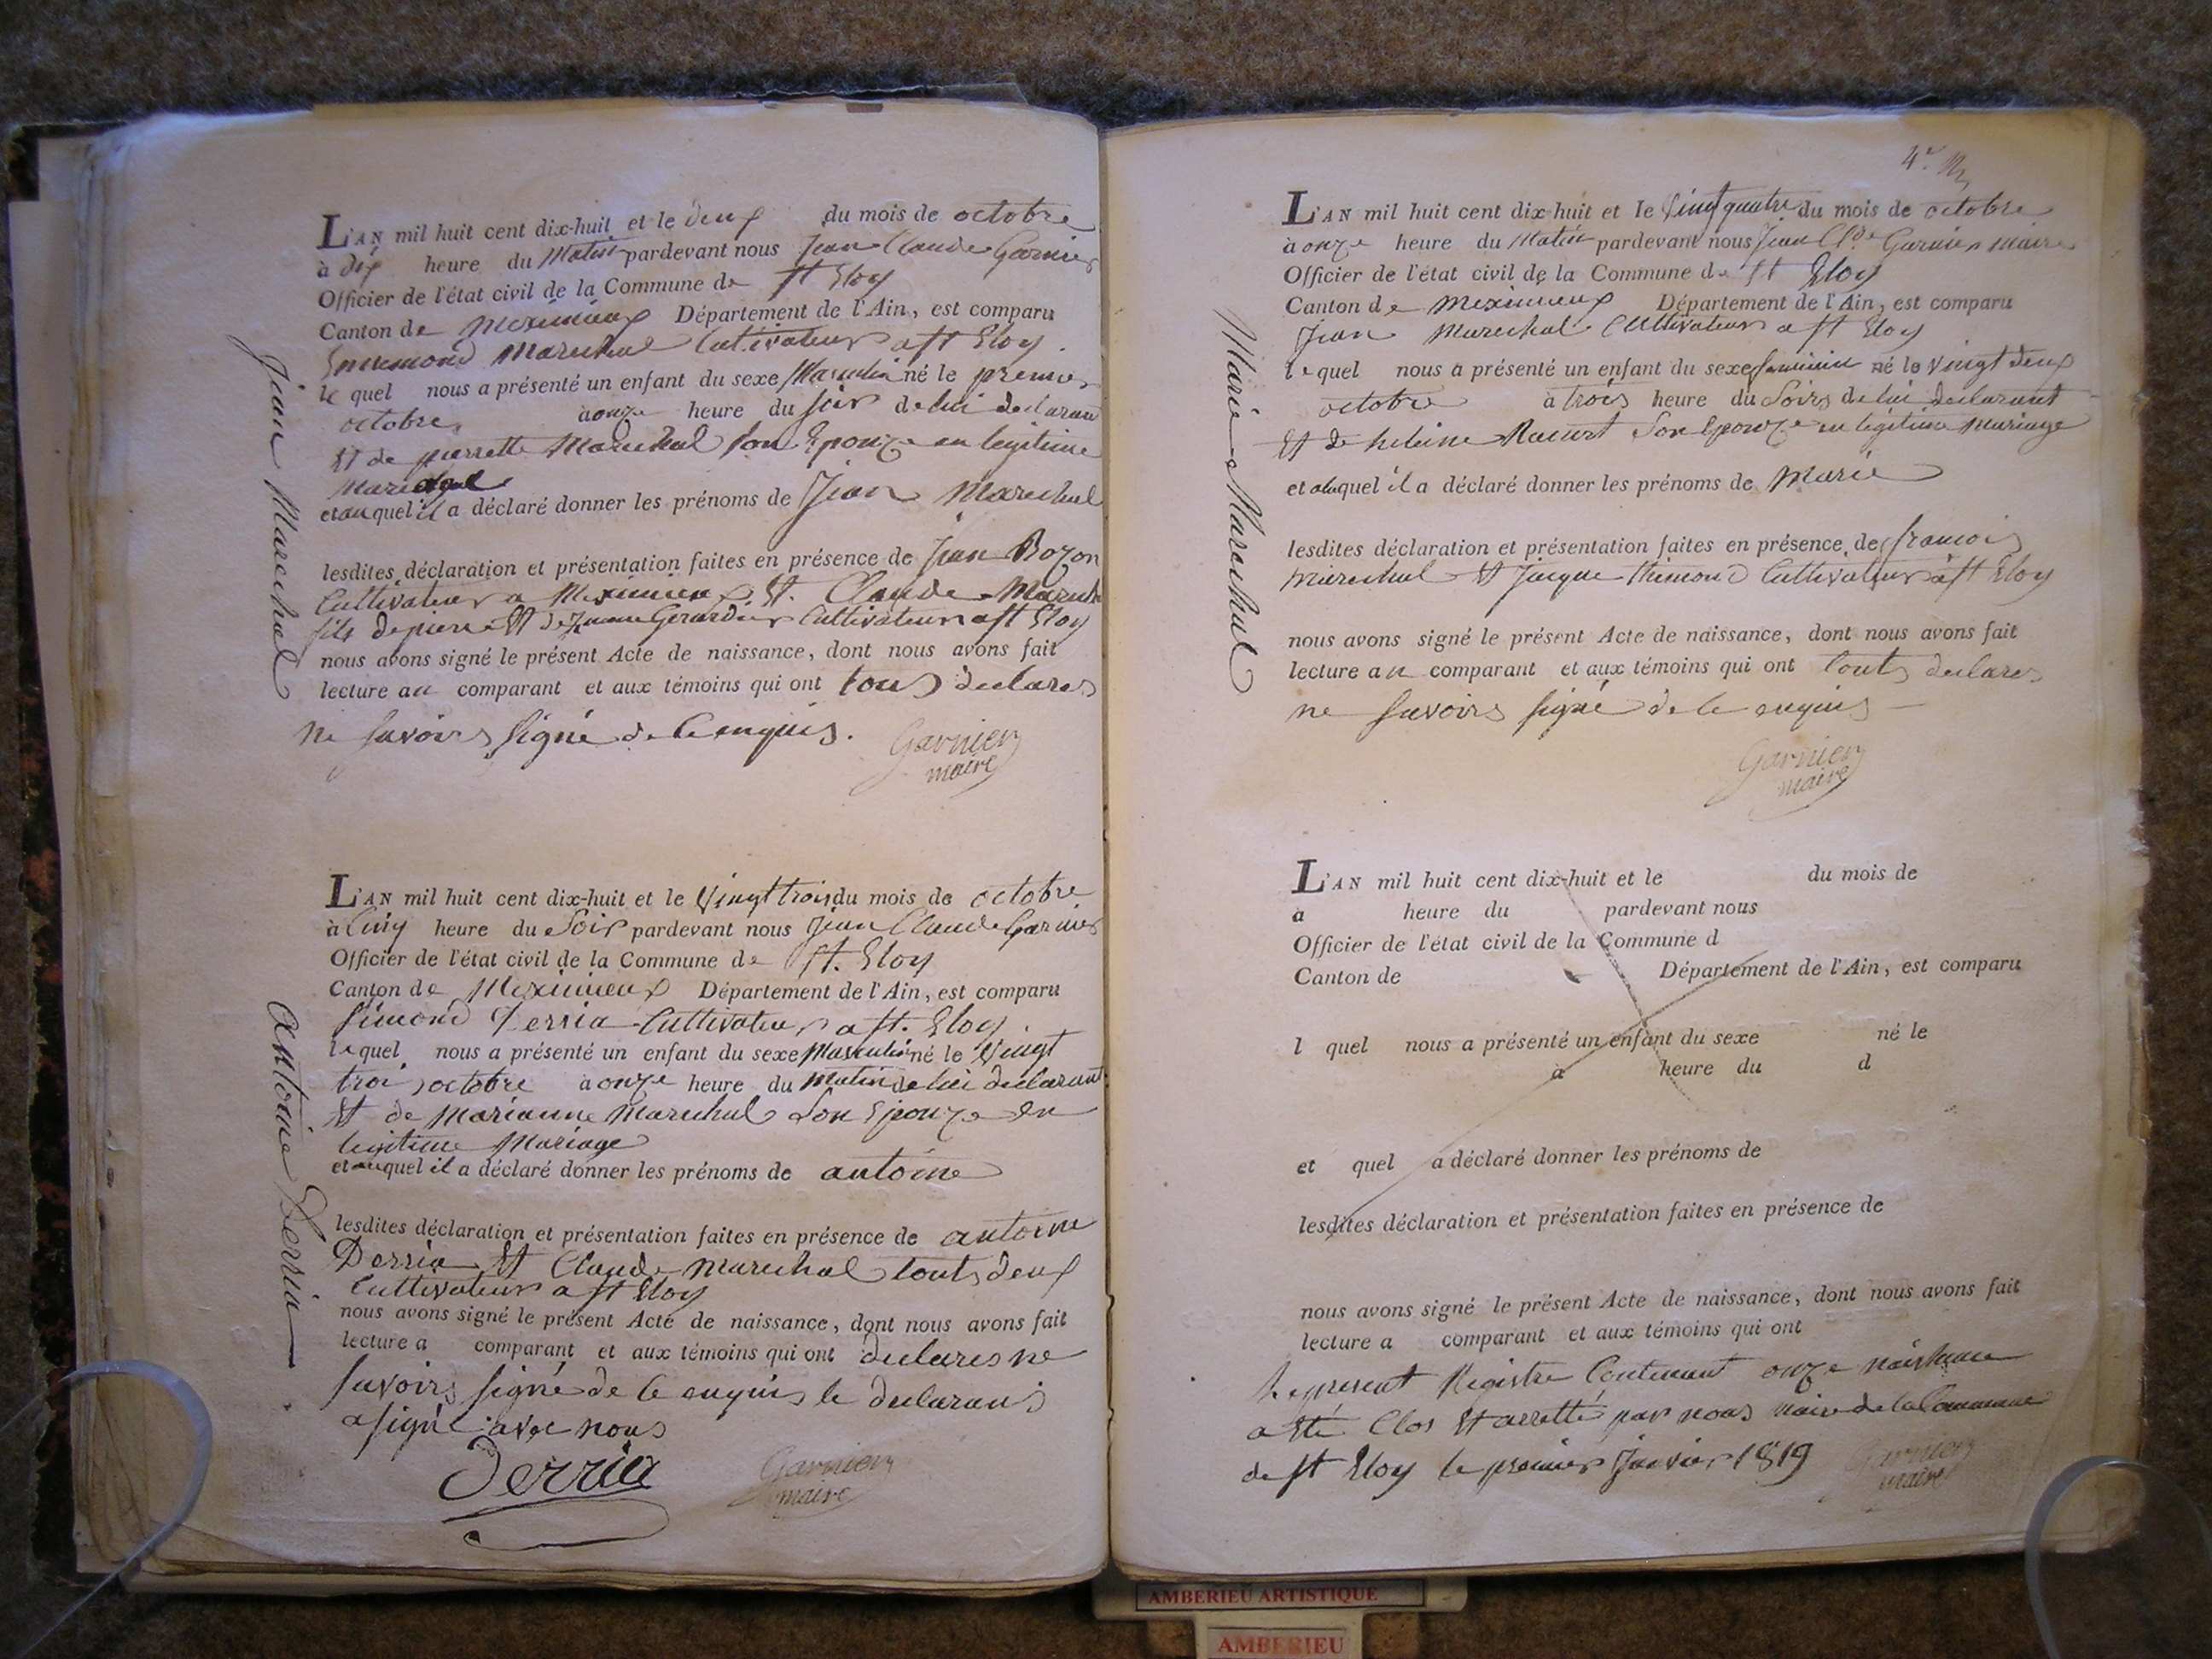 Jean Marechal
L'AN mil huit cent dix-huit et le deux du mois de octobre
à dix heure du Matin pardevant nous Jean Claude Garnier
Officier de l'état civil de la Commune de st Eloy
Canton de Meximieux Département de l'Ain, est comparu
Ennemond Marechal Cultivateur a st Eloy.
le quel nous a présenté un enfant du sexe Masculin né le premier
octobre à onze heure du soir de lui declarant
Et de pierrette Marechal son Epouze en legitime
Mariage
et au quel il a déclaré donner les prénoms de Jean Marechal
lesdites déclaration et présentation faites en présence de Jean Bozon
Cultivateur a Meximieux Et. Claude Marech
fils de pierre Et de Jeanne Gerardier Cultivateur a st Eloy
nous avons signé le présent Acte de naissance, dont nous avons fait
lecture au comparant et aux témoins qui ont tous declares
ne savoirs signé de ce enquis.
Garnier
maire
Antoine Derria
L'AN mil huit cent dix-huit et le vingt trois du mois de octobre
à Cinq heure du Soir pardevant nous Jean Claude Garnier
Officier de l'état civil de la Commune de st. Eloy
Canton de Meximieux Département de l'Ain, est comparu
Simond Derria Cultivateur a st. Eloy.
le quel nous a présenté un enfant du sexe Masculin né le vingt
trois octobre à onze heure du matin de lui declarant
Et de Marianne Marechal Son Epouze en
legitime Mariage
et au quel il a déclaré donner les prénoms de antoine
lesdites déclaration et présentation faites en présence de antoine
Derria Et Claude Marechal touts deux
Cultivateur a st Eloy
nous avons signé le présent Acte de naissance, dont nous avons fait
lecture a comparant et aux témoins qui ont declares ne
savoirs signé de ce enquis le declarant
a signé avec nous
Derria
Garnier
maire
4e
Marie Marechal
L'AN mil huit cent dix-huit et le vingt quatre du mois de octobre
à onze heure du Matin pardevant nous Jean Cl.de Garnier maire
Officier de l'état civil de la Commune de st Eloy
Canton de Meximieux Département de l'Ain, est comparu
Jean Marechal Cultivateur a st Eloy
le quel nous a présenté un enfant du sexe feminin né le vingt deux
octobre à trois heure du Soirs de lui declarant
Et de heleine Son Epouze en legitime Mariage
et au quel il a déclaré donner les prénoms de Marie
lesdites déclaration et présentation faites en présence de francois
Marechal Et Jacque Cultivateur a st Eloy
nous avons signé le présent Acte de naissance, dont nous avons fait
lecture au comparant et aux témoins qui ont touts declares
ne savoirs signé de ce enquis
Garnier
maire
L'AN mil huit cent dix-huit et le du mois de
à heure du pardevant nous
Officier de l'état civil de la Commune d
Canton de Département de l'Ain, est comparu
l quel nous a présenté un enfant du sexe né le
à heure du d
et quel a déclaré donner les prénoms de
lesdites déclaration et présentation faites en présence de
nous avons signé le présent Acte de naissance, dont nous avons fait
lecture a comparant et aux témoins qui ont
Le present Registre Contenant onze naissance
a Eté Clos Et arretté par nous maire de la Commune
de st Eloy le premier Janvier 1819
Garnier
maire
AMBERIEU ARTISTIQUE
AMBERIEU